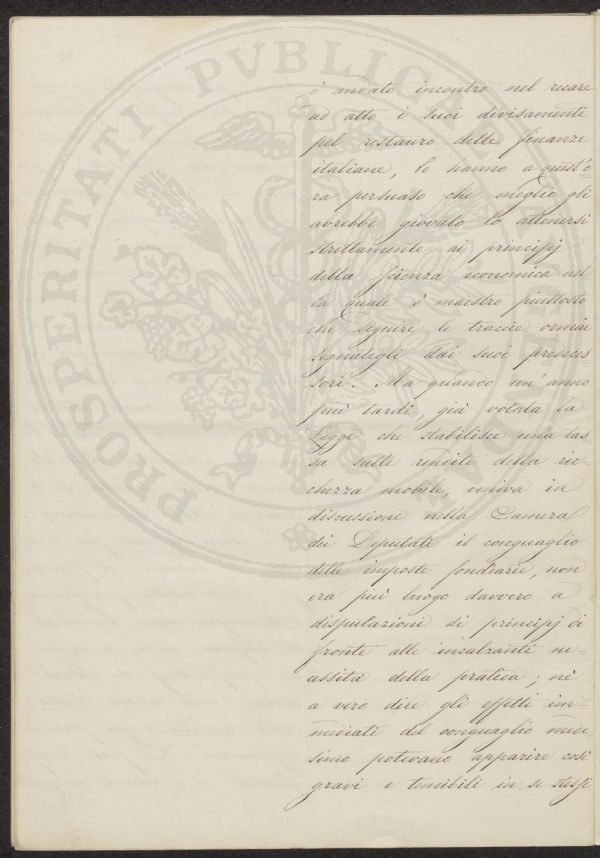 PROSPERITATI PVBLICAE
è andato incontro nel recare
ad atto i suoi divisamenti
pel restauro delle finanze
italiane, lo hanno a quest'o=
ra persuaso che meglio gli
avrebbe giovato lo attenersi
strettamente ai principj
della scienza economica nel
la quale è maestro piuttosto
che seguire le traccie ormai
segnategli dai suoi predeces
sori. Ma quando un'anno
più tardi, già votata la
legge che stabilisce una tas
sa sulle rendite della ric=
chezza mobile, veniva in
discussione nella Camera
dei Deputati il conguaglio
delle imposte fondiarie, non
era più luogo davvero a
disputazioni di principj di
fronte alle incalzanti ne=
cessità della pratica; nè
a vero dire gli effetti im=
mediati del conguaglio mede
simo potevano apparire così
gravi e temibili in se stessi